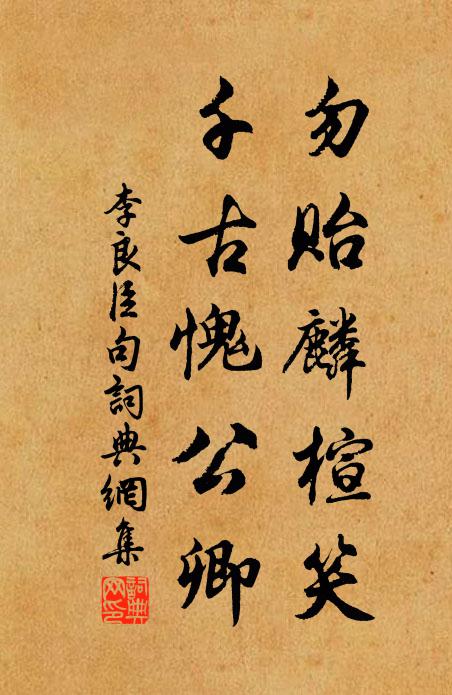 勿貽麟楦笑
千古愧公卿
李良臣句詞典網集
詞典網印